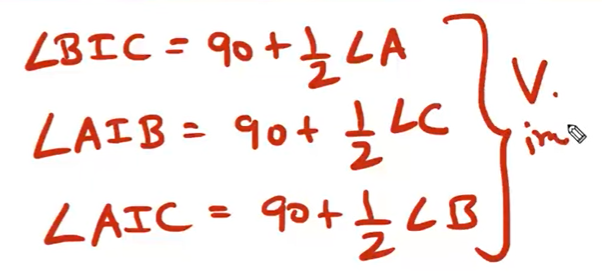 ∠BIC = 90 + 1/2 ∠A
∠AIB = 90 + 1/2 ∠C
∠AIC = 90 + 1/2 ∠B
V.
im